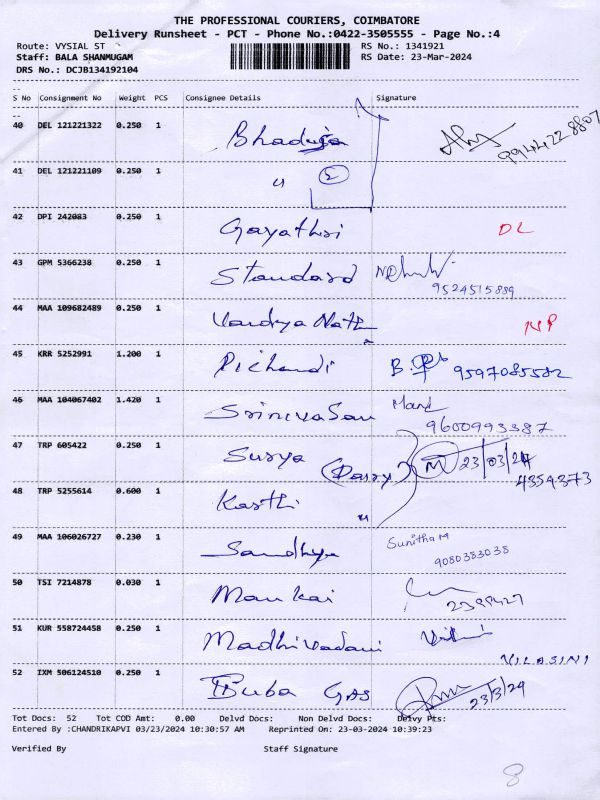 THE PROFESSIONAL COURIERS, COIMBATORE
Delivery Runsheet - PCT - Phone No.:0422-3505555 - Page No.:4
Route: VYSIAL ST RS No.: 1341921
Staff: BALA SHANMUGAM RS Date: 23-Mar-2024
DRS No.: DCJB134192104
S No Consignment No Weight PCS Consignee Details Signature
40 DEL 121221322 0.250 1 9944228807
41 DEL 121221109 0.250 1 " 2
42 DPI 242083 0.250 1 Gayathri DL
43 GPM 5366238 0.250 1 Standard 9524515889
44 MAA 109682489 0.250 1 Vaidya Nath NP
45 KRR 5252991 1.200 1 Pichandi 9597085582
46 MAA 104067402 1.420 1 Srinivasan Mani 9600993387
47 TRP 605422 0.250 1 Surya 23/03/24
4354373
48 TRP 5255614 0.600 1 Karthi "
49 MAA 106026727 0.230 1 Sandhya Sunitha M
9080383038
50 TSI 7214878 0.030 1 Mankai
51 KUR 558724458 0.250 1 Madhivadani
VILASINI
52 IXM 506124510 0.250 1 Buba GAS 23/3/24
Tot Docs: 52 Tot COD Amt: 0.00 Delvd Docs: Non Delvd Docs: Delvy Pts:
Entered By :CHANDRIKAPVI 03/23/2024 10:30:57 AM Reprinted On: 23-03-2024 10:39:23
Verified By Staff Signature
8